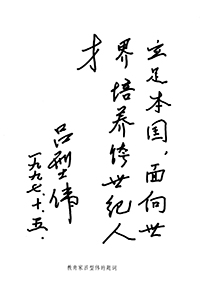 立足本国,面向世
界培养跨世纪人
才
吕型伟
一九九七.十.五.
教育家吕型伟的题词